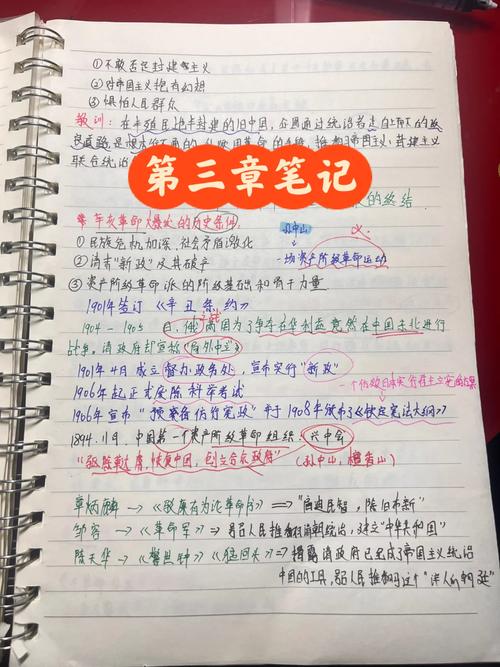 ①不敢否定封建主义
②对帝国主义抱有幻想
③惧怕人民群众
教训：在半殖民地半封建的旧中国，企图通过统治者走自上而下的改
良道路是根本行不通的，必须用革命的手段，推翻帝国主义、封建主义
联合统治
第三章笔记
的终结.
辛亥革命大爆发的历史条件： 孙中山
①民族危机加深，社会矛盾激化 一场资产阶级革命运动
②清末"新政"及其破产
③资产阶级革命派的阶级基础和骨干力量
1901年签订《辛丑条约》
1904-1905 日，俄两国为了争夺在华利益竟然在中国东北进行
战争。清政府却宣称"局外中立"
1901年4月成立督办政务处，宣布实行"新政"
1906年起正式废除科举考试
1906年宣布"预备仿行宪政"于1908年颁布《钦定宪法大纲》
1894.11月，中国第一个资产阶级革命组织：兴中会
"驱除鞑虏，恢复中国，创立合众政府"（孙中山，檀香山）
章炳麟→《驳康有为论革命书》⇒"启迪民智，除旧布新"
邹容→《革命军》⇒号召人民推翻清朝统治，建立"中华共和国"
陈天华→《警世钟》《猛回头》⇒揭露清政府已经成了帝国主义统治
中国的工具，号召人民推翻这个"洋人的朝廷"